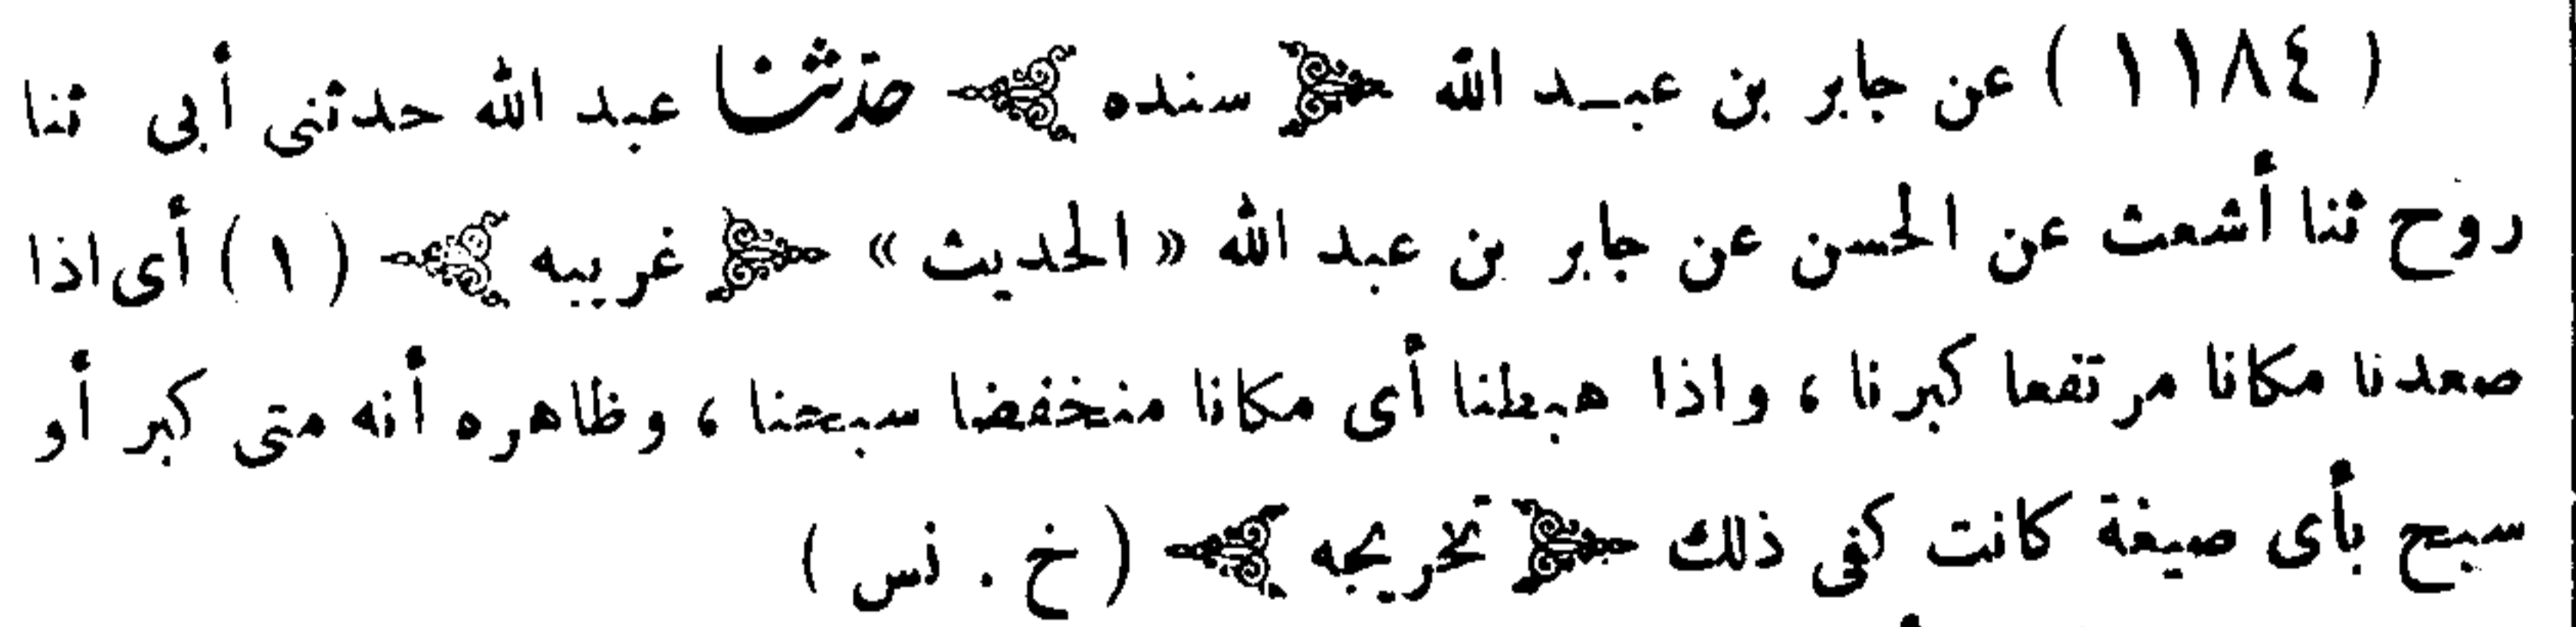 ( ١١٨٤ ) عن جابر بن عبـد الله ﴿ سنده ﴾ حدّثنا عبد الله حدثنى أبى ثنا
روح ثنا أشعث عن الحسن عن جابر بن عبد الله « الحديث » ﴿ غريبه ﴾ ( ١ ) أى اذا
صعدنا مكانا مرتفعا كبرنا ، واذا هبطنا أى مكانا منخفضا سبحنا ، وظاهره أنه متى كبر أو
سبح بأى صيغة كانت كفى ذلك ﴿ تخريجه ﴾ ( خ . نس )